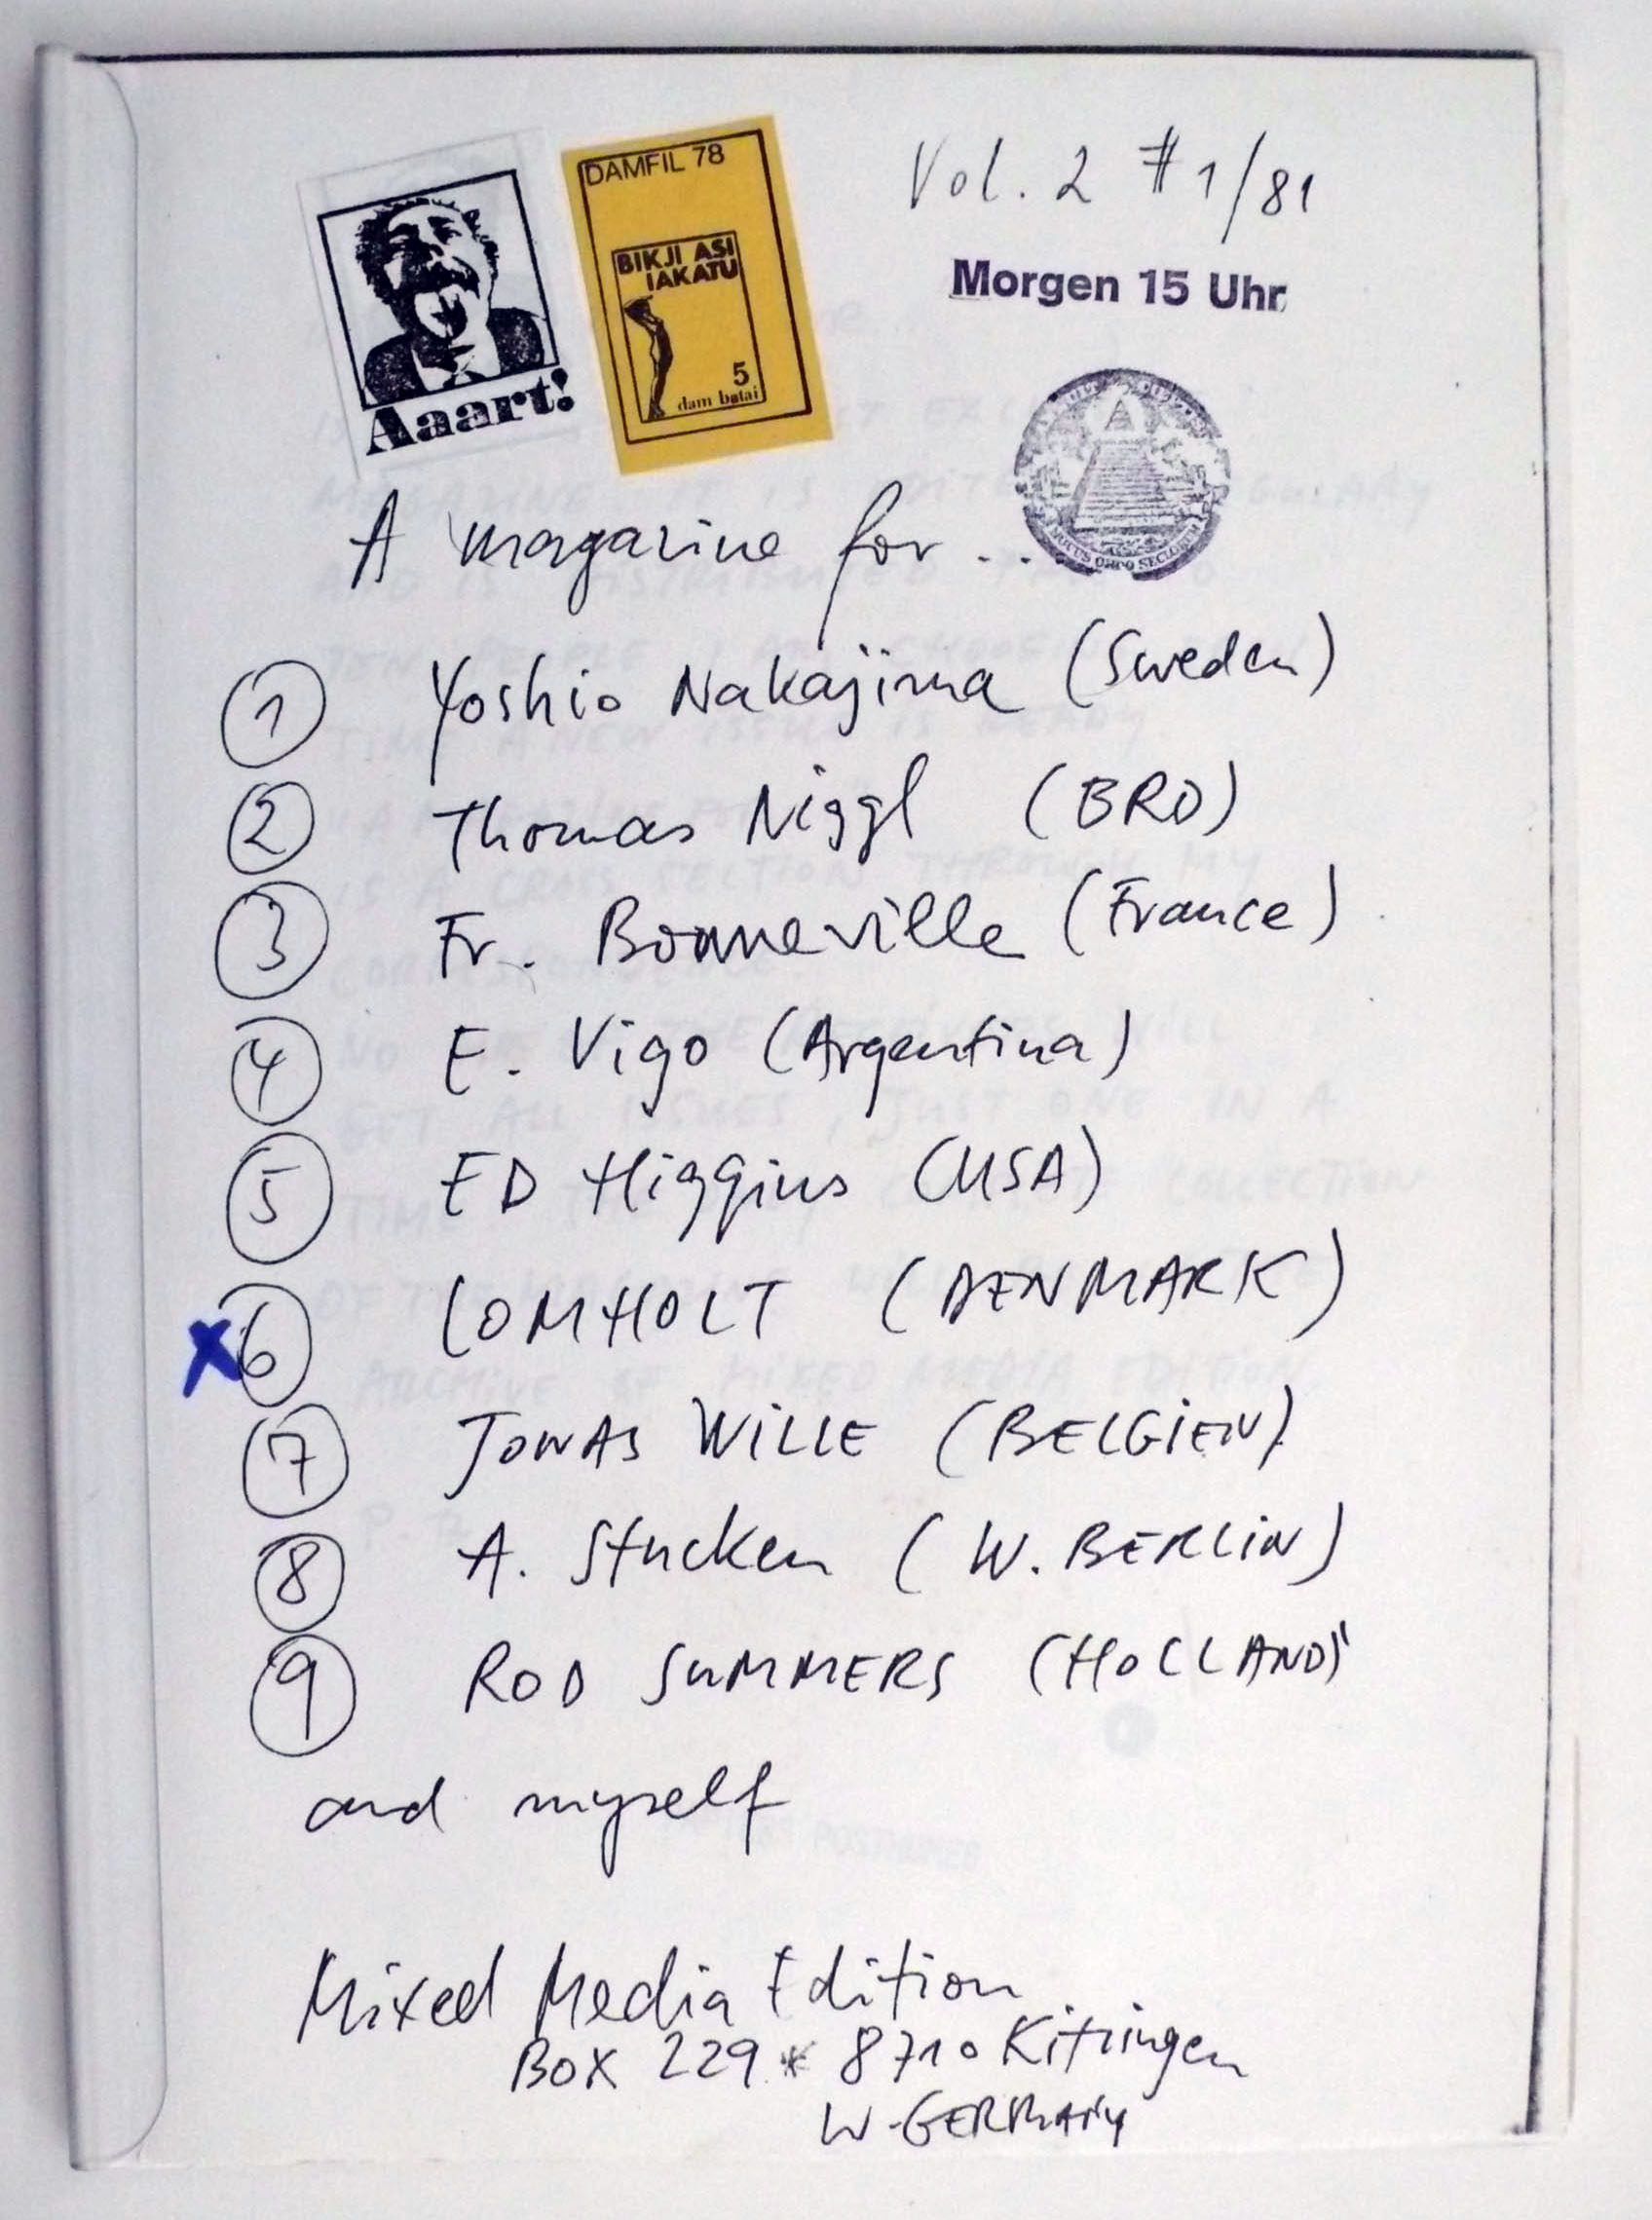 Aaart!
DAMFIL 78
BIKJI ASI
IAKATU
5
dam batai
Vol. 2 #1/81
Morgen 15 Uhr
A magazine for ...
1 Yoshio Nakajima (Sweden)
2 Thomas Niggl (BRD)
3 Fr. Bonneville (France)
4 E. Vigo (Argentina)
5 ED Higgins (USA)
X 6 LOMHOLT (DENMARK)
7 JONAS WILLE (BELGIEN)
8 A. Stucken (W. BERLIN)
9 ROD SUMMERS (HOLLAND)
and myself
Mixed Media Edition
BOX 229 * 8710 Kitzingen
W-GERMANY